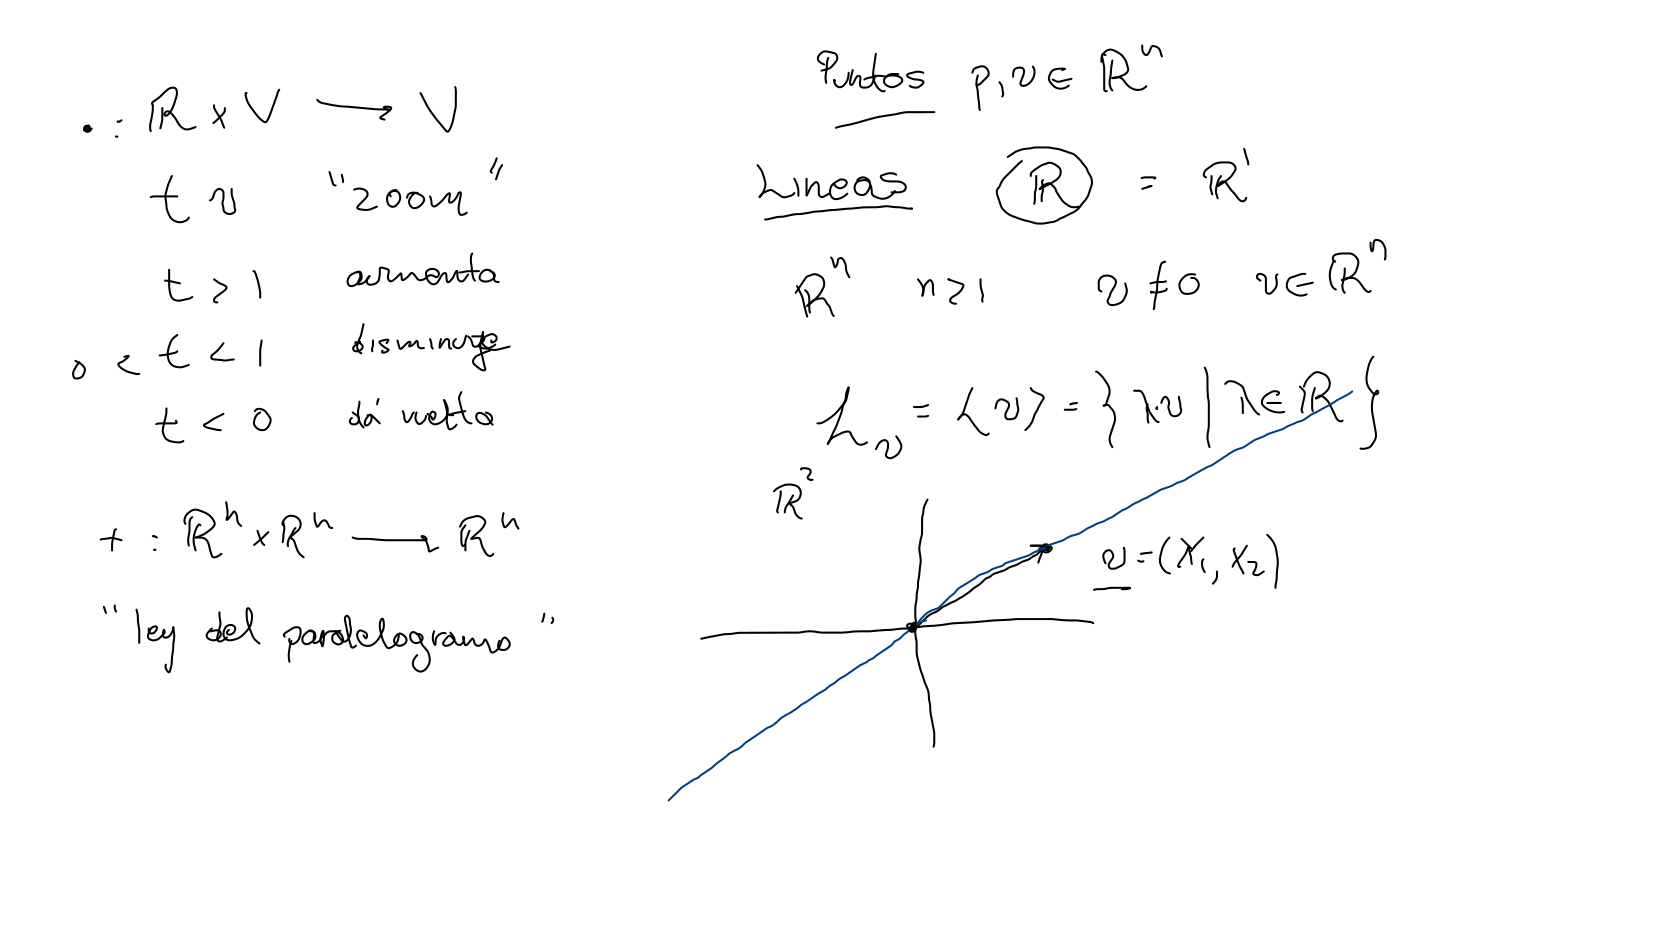 • : ℝ x V ⟶ V
t v "zoom"
t > 1 aumenta
0 < t < 1 disminuye
t < 0 dá vuelta
+ : ℝⁿ x ℝⁿ ⟶ ℝⁿ
"ley del paralelogramo"
Puntos p, v ∈ ℝⁿ
Lineas ℝ = ℝ¹
ℝⁿ n ≥ 1 v ≠ 0 v ∈ ℝⁿ
L_v = ⟨v⟩ = { λ·v | λ ∈ ℝ }
ℝ²
v = (x₁, x₂)